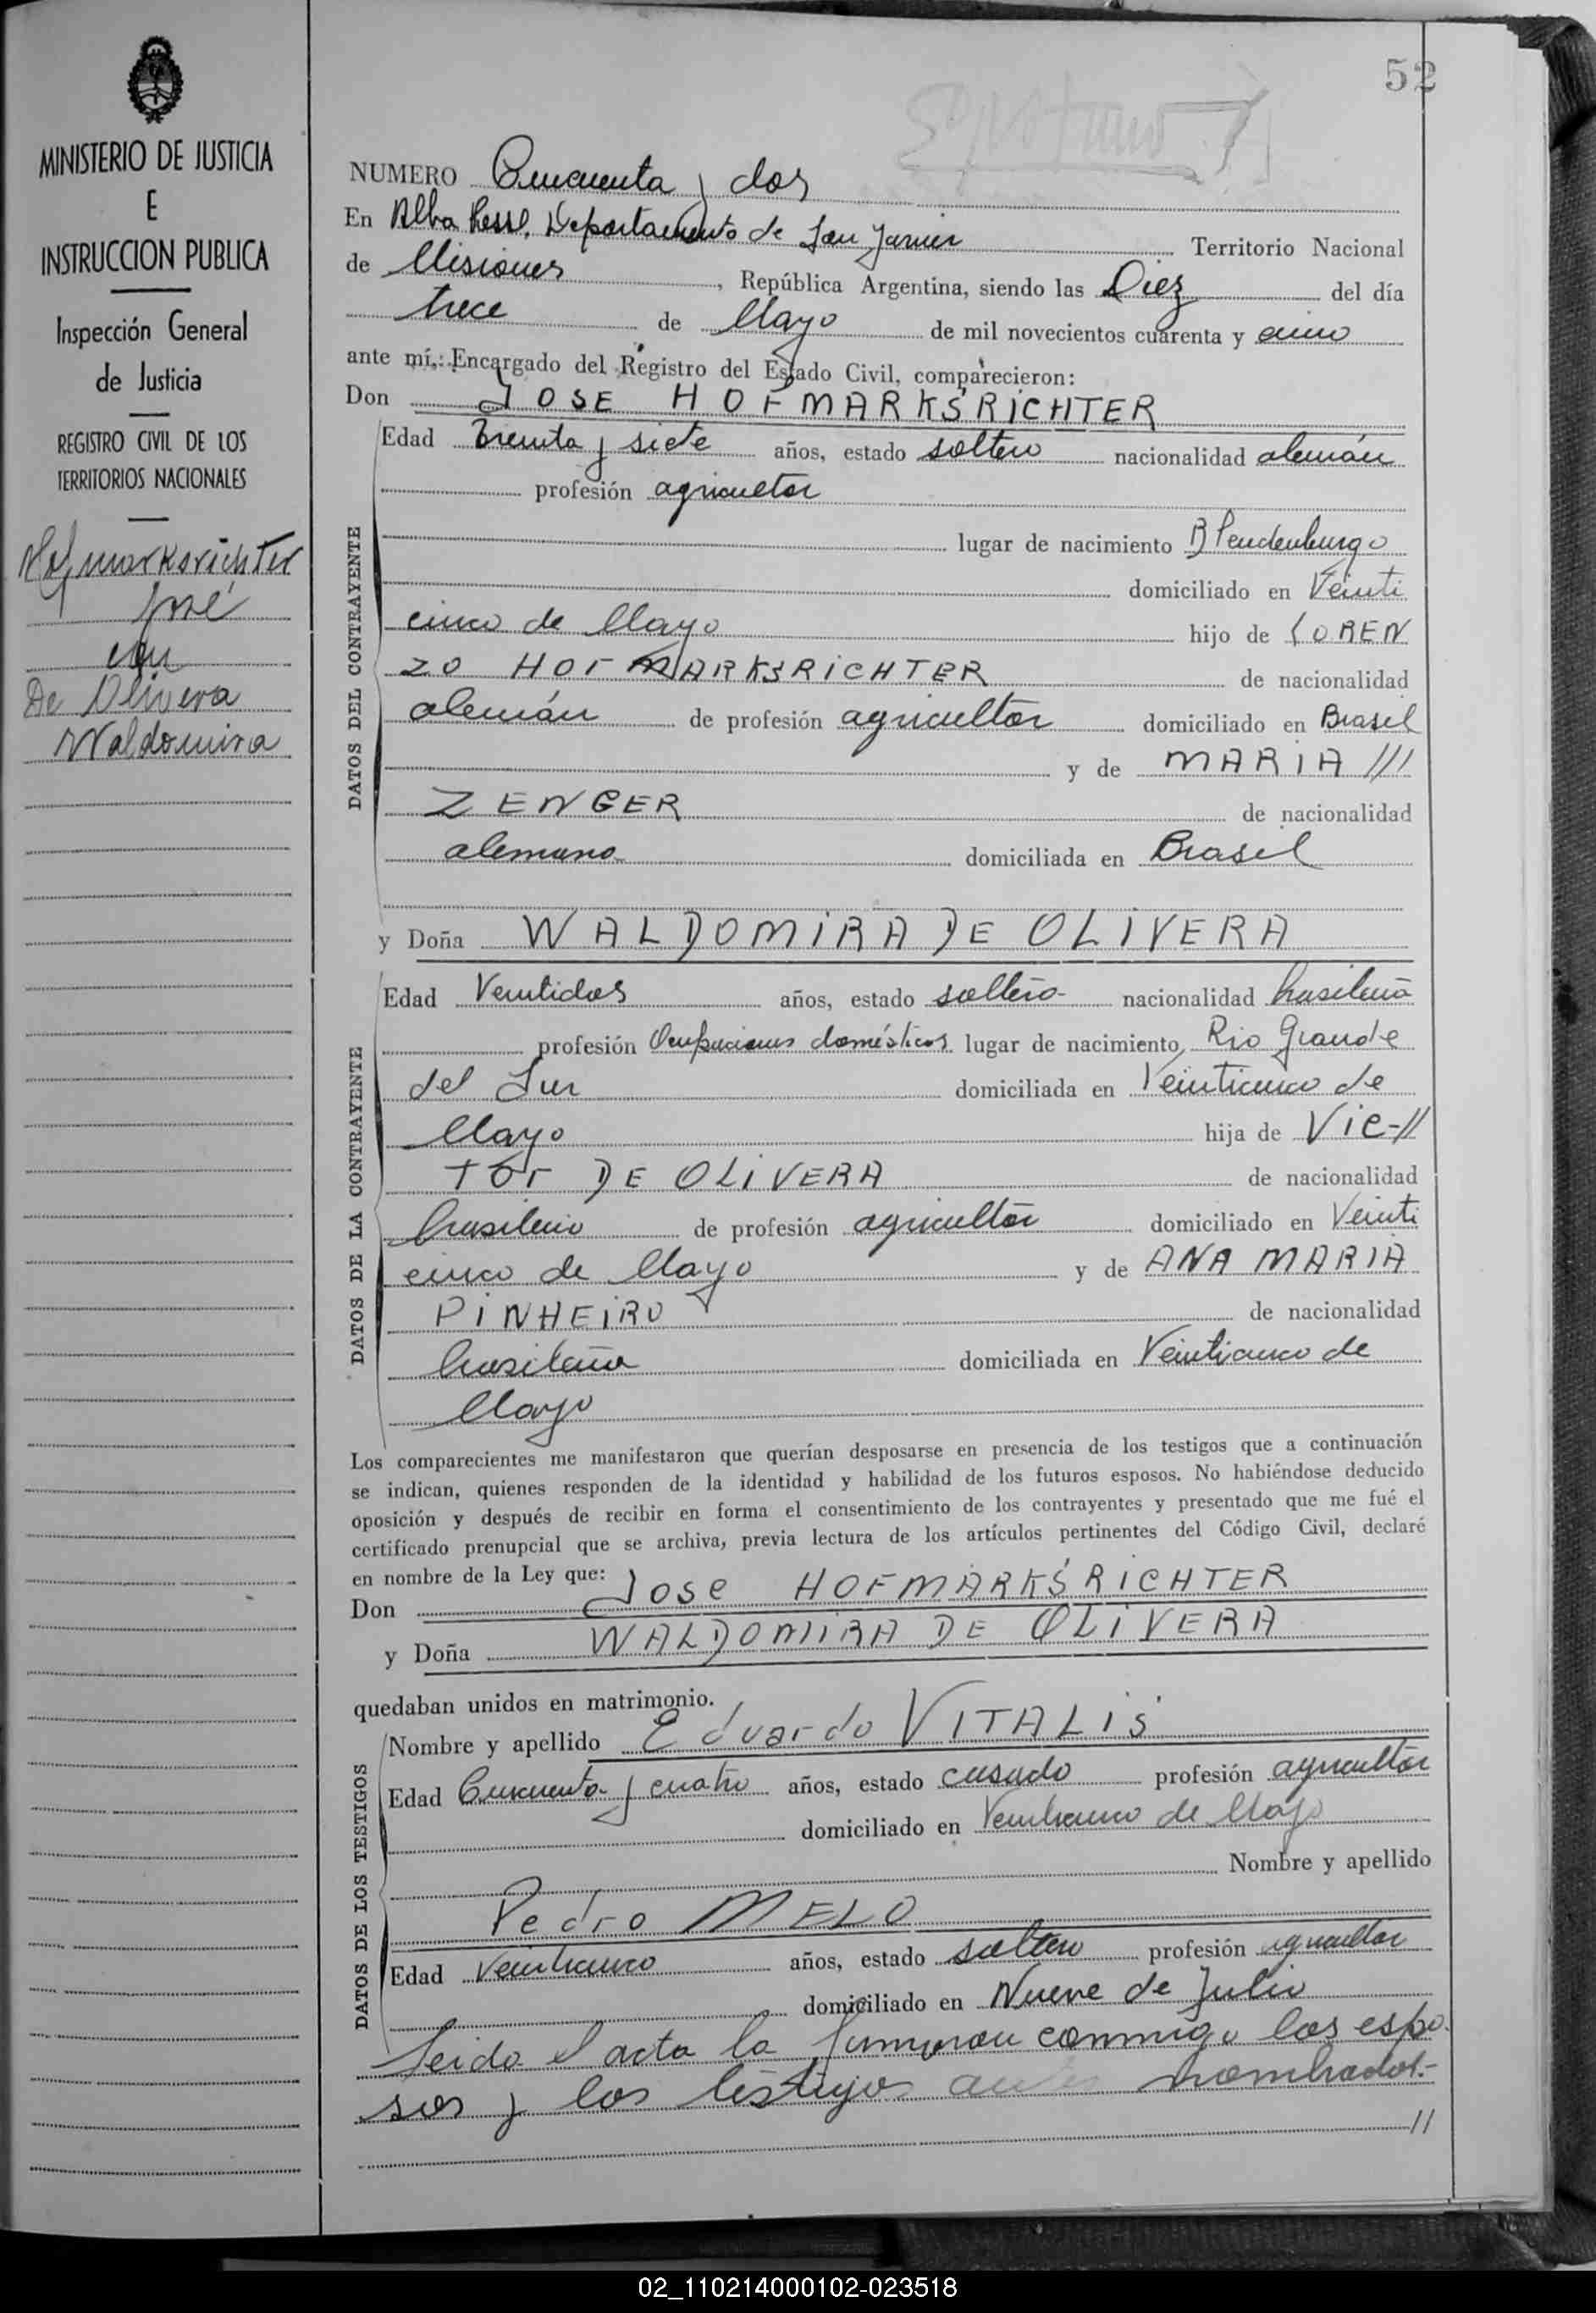 52
MINISTERIO DE JUSTICIA
E
INSTRUCCION PUBLICA
Inspección General
de Justicia
REGISTRO CIVIL DE LOS
TERRITORIOS NACIONALES
Hofmarksrichter
José
con
De Olivera
Waldomira
NUMERO Cincuenta y dos
En Alba Posse, Departamento de San Javier Territorio Nacional
de Misiones, República Argentina, siendo las Diez del día
trece de Mayo de mil novecientos cuarenta y cinco
ante mí, Encargado del Registro del Estado Civil, comparecieron:
Don JOSE HOFMARKSRICHTER
Edad Treinta y siete años, estado soltero nacionalidad alemán
profesión agricultor
lugar de nacimiento
domiciliado en Veinti
cinco de Mayo hijo de LOREN
ZO HOFMARKSRICHTER de nacionalidad
alemán de profesión agricultor domiciliado en Brasil
y de MARIA ///
ZENGER de nacionalidad
alemana domiciliada en Brasil
y Doña WALDOMIRA DE OLIVERA
Edad Veintidos años, estado soltera nacionalidad brasileña
profesión Ocupaciones domésticas lugar de nacimiento Rio Grande
del Sur domiciliada en Veinticinco de
Mayo hija de Vic-//
Tor DE OLIVERA de nacionalidad
brasileño de profesión agricultor domiciliado en Veinti
cinco de Mayo y de ANA MARIA
PINHEIRO de nacionalidad
brasileña domiciliada en Veinticinco de
Mayo
DATOS DEL CONTRAYENTE
DATOS DE LA CONTRAYENTE
Los comparecientes me manifestaron que querían desposarse en presencia de los testigos que a continuación
se indican, quienes responden de la identidad y habilidad de los futuros esposos. No habiéndose deducido
oposición y después de recibir en forma el consentimiento de los contrayentes y presentado que me fué el
certificado prenupcial que se archiva, previa lectura de los artículos pertinentes del Código Civil, declaré
en nombre de la Ley que:
Don Jose HOFMARKSRICHTER
y Doña WALDOMIRA DE OLIVERA
quedaban unidos en matrimonio.
Nombre y apellido Eduardo VITALIS
Edad Cincuenta y cuatro años, estado casado profesión agricultor
domiciliado en Veinticinco de Mayo
Nombre y apellido
Pedro MELO
Edad veinticinco años, estado soltero profesión agricultor
domiciliado en Nueve de Julio
DATOS DE LOS TESTIGOS
Leida el acta la firmaron conmigo los espo
sos y los testigos antes nombrados.-
//
02_110214000102-023518